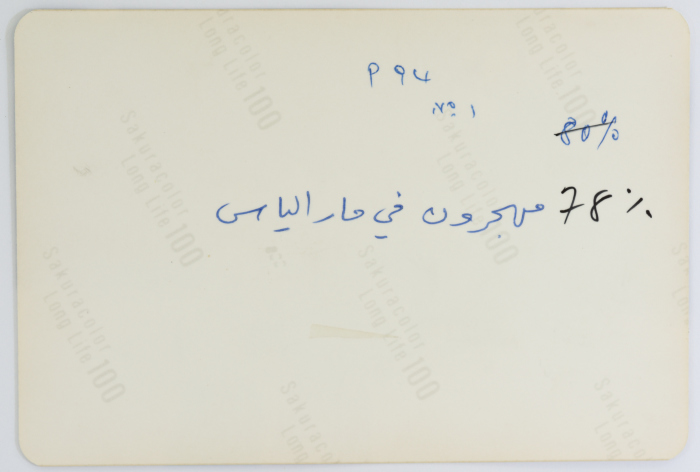 P 94
No 1
80%
78% مهجرون في مار الياس
Sakuracolor
Long Life 100
Sakuracolor
Long Life 100
Sakuracolor
Long Life 100
Sakuracolor
Long Life 100
Sakuracolor
Long Life 100
Sakuracolor
Long Life 100
Sakuracolor
Long Life
Sakuracolor
Long Life